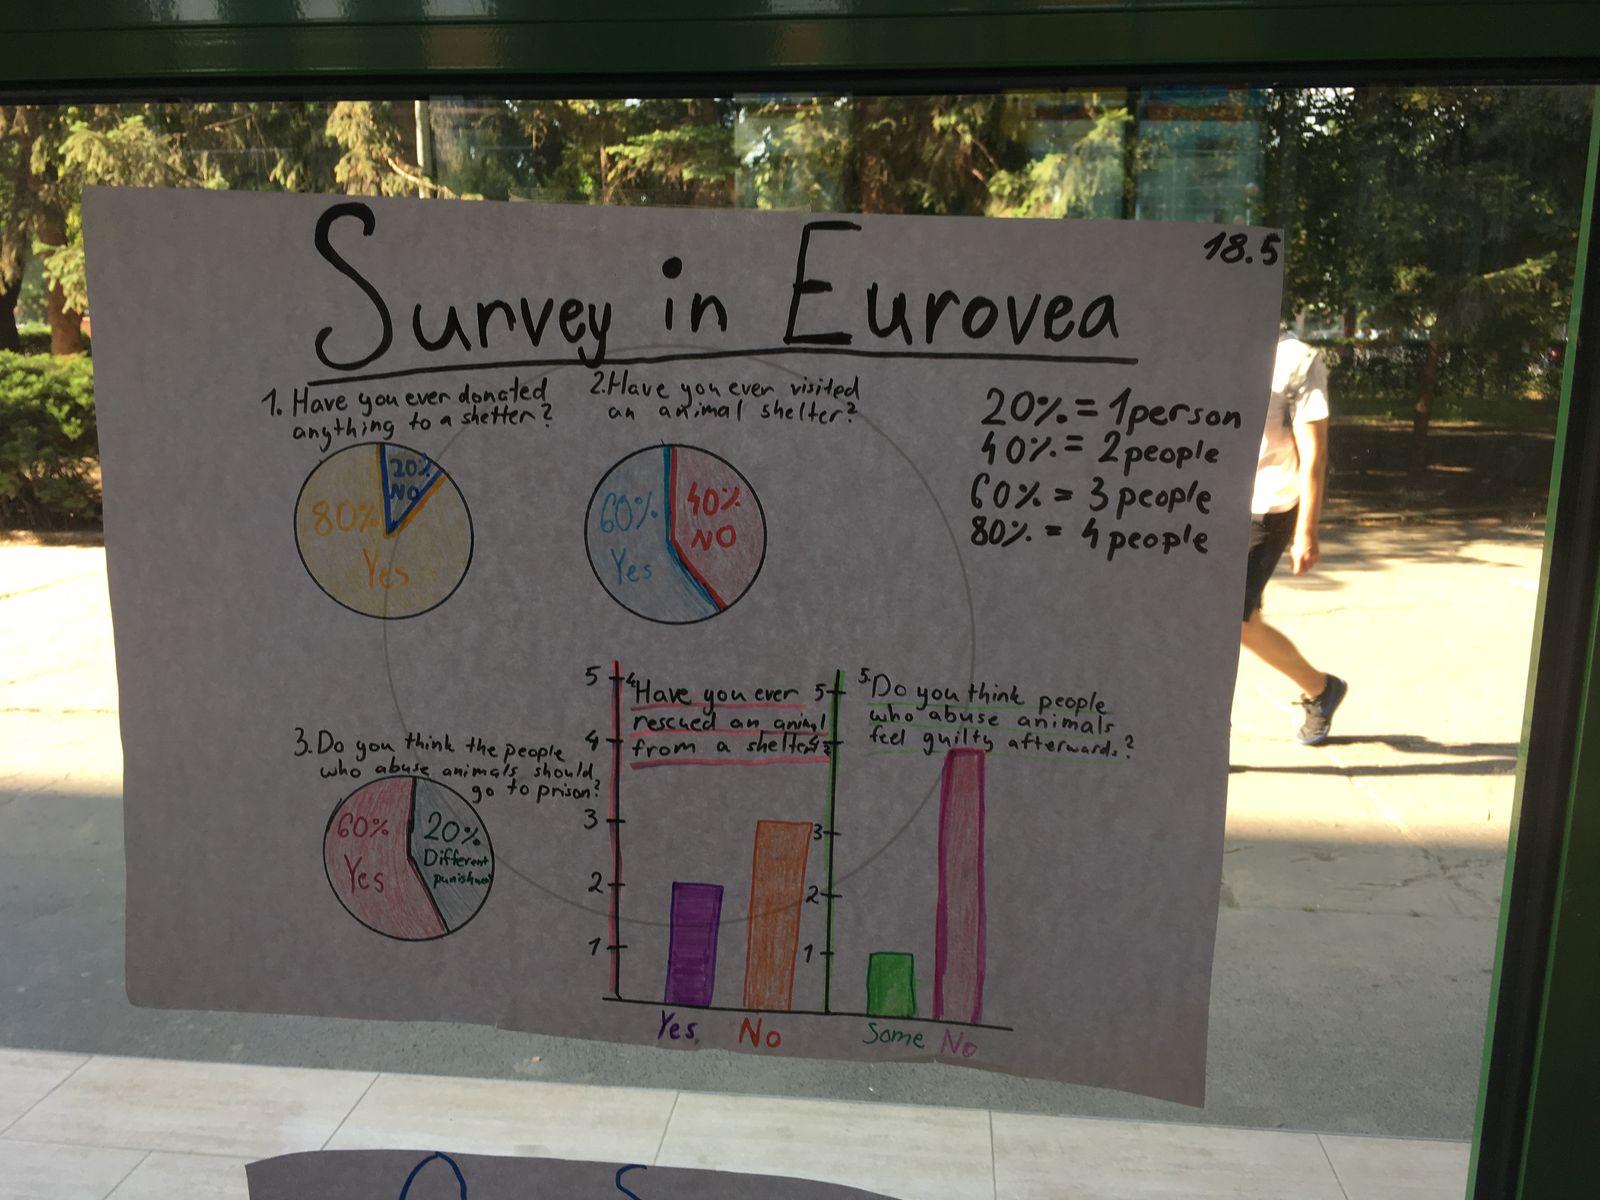 18.5
Survey in Eurovea
1. Have you ever donated
anything to a shelter?
20%
NO
80%
Yes
2. Have you ever visited
an animal shelter?
60%
Yes
40%
NO
20% = 1 person
40% = 2 people
60% = 3 people
80% = 4 people
3. Do you think the people
who abuse animals should
go to prison?
60%
Yes
20%
Different
punishment
4. Have you ever
rescued an animal
from a shelter?
5
4
3
2
1
Yes
No
5. Do you think people
who abuse animals
feel guilty afterwards?
5
4
3
2
1
Some
No